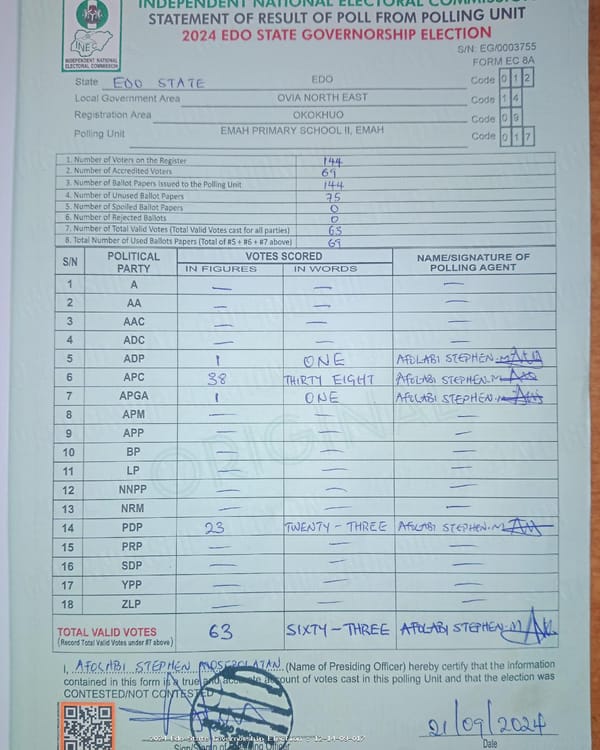 INDEPENDENT NATIONAL ELECTORAL COMMISSION
STATEMENT OF RESULT OF POLL FROM POLLING UNIT
2024 EDO STATE GOVERNORSHIP ELECTION
INEC
INDEPENDENT NATIONAL
ELECTORAL COMMISSION
S/N: EG/0003755
FORM EC 8A
State EDO STATE EDO Code 0 1 2
Local Government Area OVIA NORTH EAST Code 1 4
Registration Area OKOKHUO Code 0 9
Polling Unit EMAH PRIMARY SCHOOL II, EMAH Code 0 1 7
1. Number of Voters on the Register 144
2. Number of Accredited Voters 69
3. Number of Ballot Papers Issued to the Polling Unit 144
4. Number of Unused Ballot Papers 75
5. Number of Spoiled Ballot Papers 0
6. Number of Rejected Ballots 0
7. Number of Total Valid Votes (Total Valid Votes cast for all parties) 63
8. Total Number of Used Ballots Papers (Total of #5 + #6 + #7 above) 69
S/N POLITICAL PARTY VOTES SCORED NAME/SIGNATURE OF POLLING AGENT
IN FIGURES IN WORDS
1 A — — —
2 AA — — —
3 AAC — — —
4 ADC — — —
5 ADP 1 ONE AFOLABI STEPHEN.M
6 APC 38 THIRTY EIGHT AFOLABI STEPHEN.M
7 APGA 1 ONE AFOLABI STEPHEN.M
8 APM — — —
9 APP — — —
10 BP — — —
11 LP — — —
12 NNPP — — —
13 NRM — — —
14 PDP 23 TWENTY-THREE AFOLABI STEPHEN.M
15 PRP — — —
16 SDP — — —
17 YPP — — —
18 ZLP — — —
ORIGINAL
TOTAL VALID VOTES 63 SIXTY-THREE AFOLABI STEPHEN.M
(Record Total Valid Votes under #7 above)
I, AFOLABI STEPHEN (Name of Presiding Officer) hereby certify that the information
contained in this form is a true and accurate account of votes cast in this polling Unit and that the election was
CONTESTED/NOT CONTESTED
21/09/2024
2024 Edo State Governorship Election - 12-14-09-017
Date